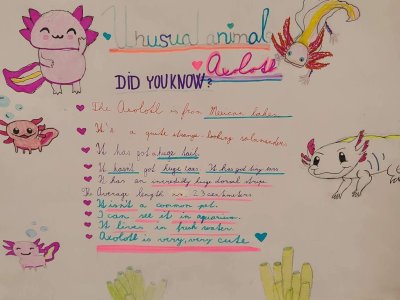 Unusual animal
Axolotl
DID YOU KNOW?
The Axolotl is from Mexican lakes.
It's a quite strange-looking salamander.
It has got a huge tail.
It hasn't got huge ears. It has got tiny ears
It has an incredibly huge dorsal stripe
The Average length is 23 centimeters
It isn't a common pet.
I can see it in aquarium.
It lives in fresh water.
Axolotl is very, very cute